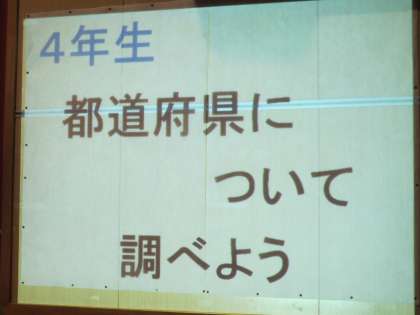 ４年生
都道府県に
ついて
調べよう